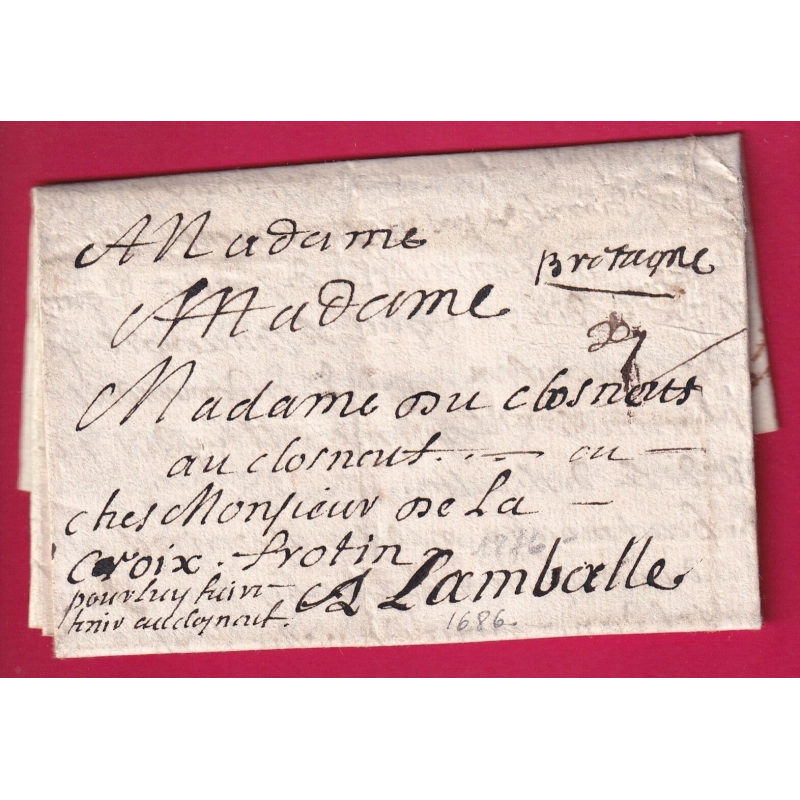 A Madame
Bretagne
A Madame
7
Madame du closneuf
au closneut. ou
ches Monsieur de la
croix. frotin
1776
pour luy faire
A Lamballe
tenir au closneut.
1686